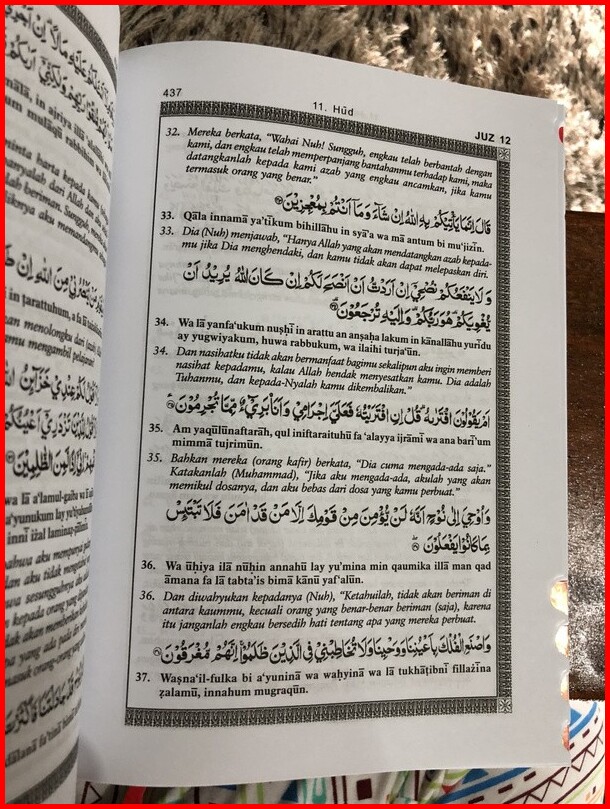 437
11. Hūd
JUZ 12
32. Mereka berkata, "Wahai Nuh! Sungguh, engkau telah berbantah dengan
kami, dan engkau telah memperpanjang bantahanmu terhadap kami, maka
datangkanlah kepada kami azab yang engkau ancamkan, jika kamu
termasuk orang yang benar."
قَالَ اِنَّمَا يَأْتِيْكُمْ بِهِ اللّٰهُ اِنْ شَاۤءَ وَمَآ اَنْتُمْ بِمُعْجِزِيْنَ ۝٣٣
33. Qāla innamā ya'tīkum bihillāhu in syā'a wa mā antum bi mu'jizīn.
33. Dia (Nuh) menjawab, "Hanya Allah yang akan mendatangkan azab kepada-
mu jika Dia menghendaki, dan kamu tidak akan dapat melepaskan diri.
وَلَا يَنْفَعُكُمْ نُصْحِيْٓ اِنْ اَرَدْتُّ اَنْ اَنْصَحَ لَكُمْ اِنْ كَانَ اللّٰهُ يُرِيْدُ اَنْ
يُّغْوِيَكُمْ ۗهُوَ رَبُّكُمْ ۗوَاِلَيْهِ تُرْجَعُوْنَ ۝٣٤
34. Wa lā yanfa'ukum nuṣḥī in arattu an anṣaḥa lakum in kānallāhu yurīdu
ay yugwiyakum, huwa rabbukum, wa ilaihi turja'ūn.
34. Dan nasihatku tidak akan bermanfaat bagimu sekalipun aku ingin memberi
nasihat kepadamu, kalau Allah hendak menyesatkan kamu. Dia adalah
Tuhanmu, dan kepada-Nyalah kamu dikembalikan."
اَمْ يَقُوْلُوْنَ افْتَرٰىهُ ۗقُلْ اِنِ افْتَرَيْتُهٗ فَعَلَيَّ اِجْرَامِيْ وَاَنَا۠ بَرِيْۤءٌ مِّمَّا تُجْرِمُوْنَ ۝٣٥
35. Am yaqūlūnaftarāh, qul iniftaraituhū fa 'alayya ijrāmī wa ana barī'um
mimmā tujrimūn.
35. Bahkan mereka (orang kafir) berkata, "Dia cuma mengada-ada saja."
Katakanlah (Muhammad), "Jika aku mengada-ada, akulah yang akan
memikul dosanya, dan aku bebas dari dosa yang kamu perbuat."
وَاُوْحِيَ اِلٰى نُوْحٍ اَنَّهٗ لَنْ يُّؤْمِنَ مِنْ قَوْمِكَ اِلَّا مَنْ قَدْ اٰمَنَ فَلَا تَبْتَىِٕسْ
بِمَا كَانُوْا يَفْعَلُوْنَ ۝٣٦
36. Wa ūḥiya ilā nūḥin annahū lay yu'mina min qaumika illā man qad
āmana fa lā tabta'is bimā kānū yaf'alūn.
36. Dan diwahyukan kepadanya (Nuh), "Ketahuilah, tidak akan beriman di
antara kaummu, kecuali orang yang benar-benar beriman (saja), karena
itu janganlah engkau bersedih hati tentang apa yang mereka perbuat.
وَاصْنَعِ الْفُلْكَ بِاَعْيُنِنَا وَوَحْيِنَا وَلَا تُخَاطِبْنِيْ فِى الَّذِيْنَ ظَلَمُوْا اِنَّهُمْ مُّغْرَقُوْنَ ۝٣٧
37. Waṣna'il-fulka bi a'yuninā wa waḥyinā wa lā tukhāṭibnī fillażīna
ẓalamū, innahum mugraqūn.